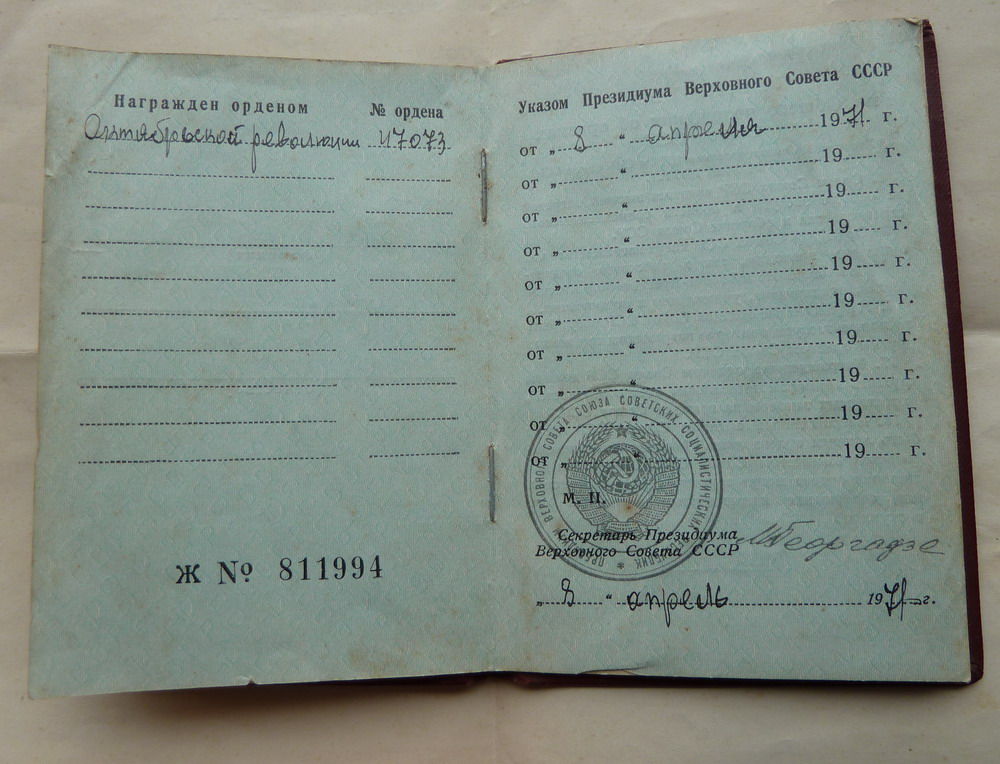 Награжден орденом № ордена
Октябрьской революции 17073
Ж № 811994
Указом Президиума Верховного Совета СССР
от „ 8 “ апреля 1971 г.
от „ “ 19 г.
от „ “ 19 г.
от „ “ 19 г.
от „ “ 19 г.
от „ “ 19 г.
от „ “ 19 г.
от „ “ 19 г.
от „ “ 19 г.
от „ “ 19 г.
ВЕРХОВНОГО СОВЕТА СОЮЗА СОВЕТСКИХ СОЦИАЛИСТИЧЕСКИХ
М. П.
Секретарь Президиума
Верховного Совета СССР
МГеоргадзе
„ 8 “ апрель 1971 г.